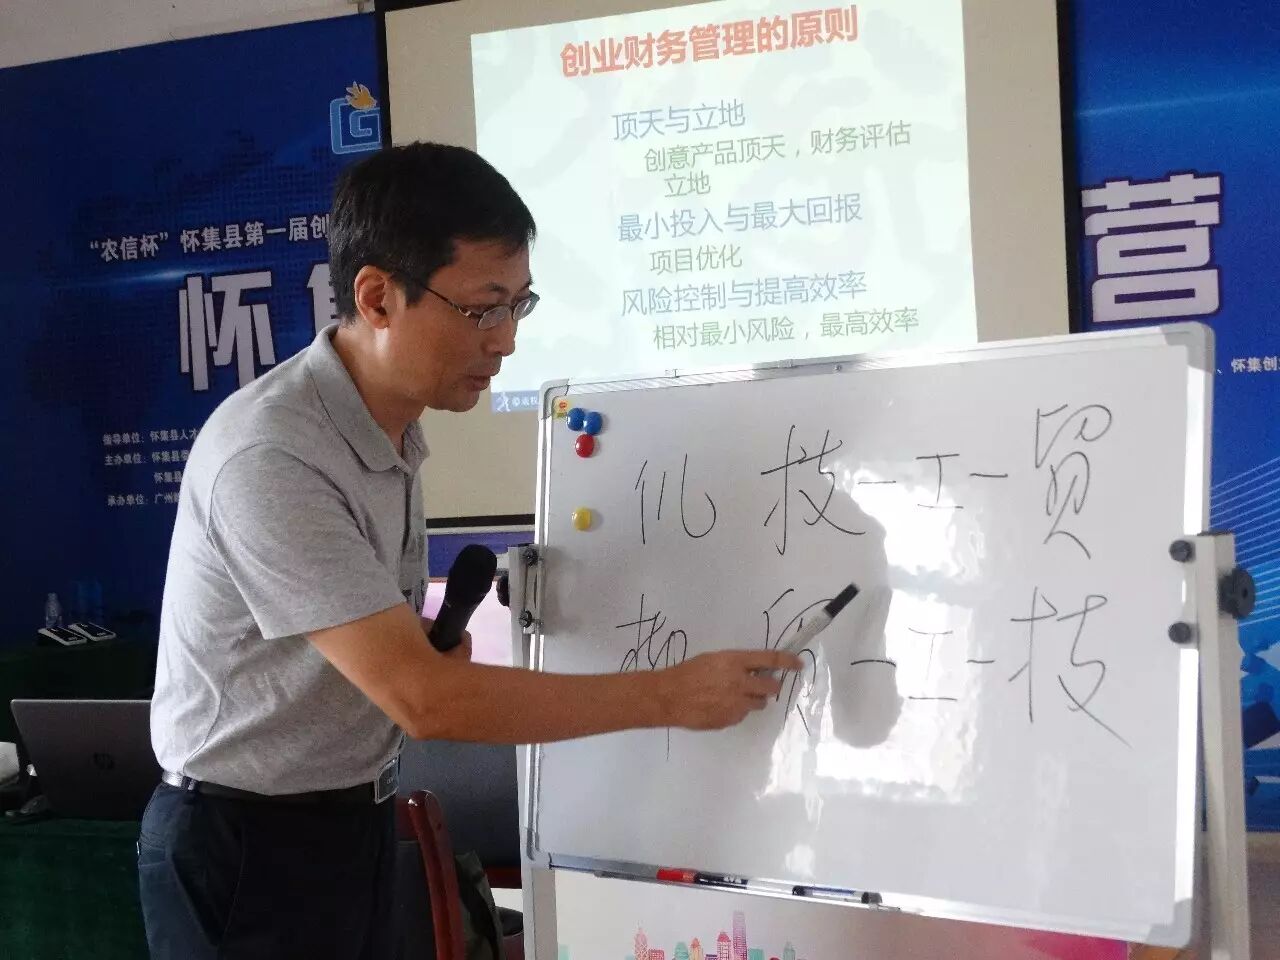 创业财务管理的原则
顶天与立地
创意产品顶天，财务评估
立地
最小投入与最大回报
项目优化
风险控制与提高效率
相对最小风险，最高效率
“农信杯”怀集县第一届创
怀集
营
、怀集创
指导单位：怀集县人才
主办单位：怀集县委
怀集县
承办单位：广州
hp
技-工-贸
贸-工-技